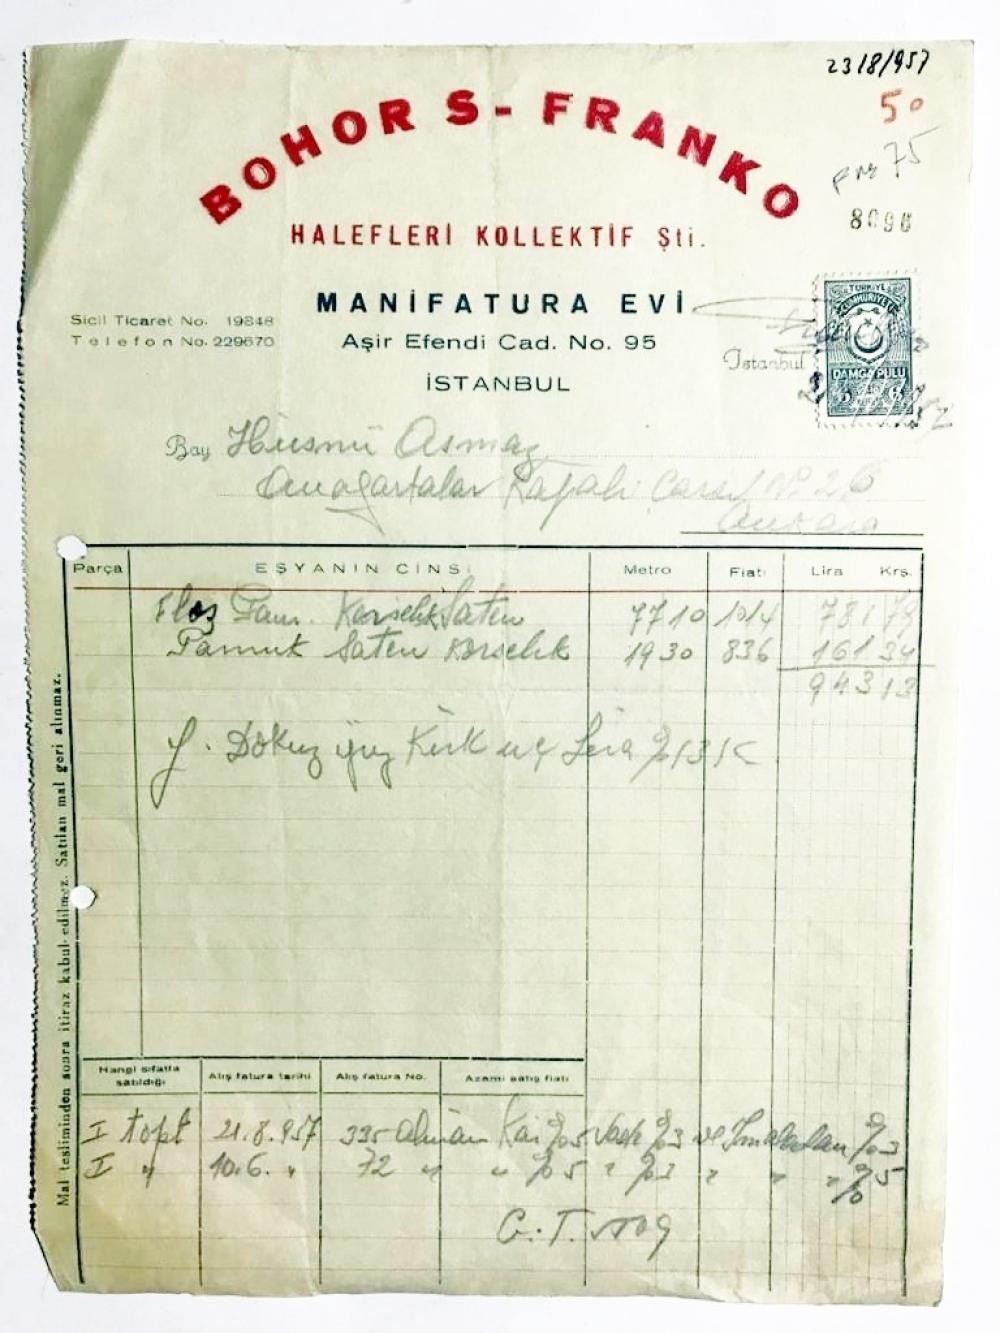 23/8/957
50
75
8096
BOHOR S- FRANKO
HALEFLERİ KOLLEKTİF Şti.
MANİFATURA EVİ
Aşir Efendi Cad. No. 95
İSTANBUL
Sicil Ticaret No. 19848
Telefon No. 229670
İstanbul
TÜRKİYE
CUMHURİYETİ
DAMGA PULU
Bay Hüsnü Asmaz
Anafartalar Kapalı Çarşı No 26
Ankara
Parça EŞYANIN CİNSİ Metro Fiatı Lira Krş.
Floş Pam. Korselik Saten 77 10 1014 781 79
Pamuk Saten Korselik 19 30 836 161 34
943 13
Y. Dokuz yüz Kırk üç Lira 13 K
Mal tesliminden sonra itiraz kabul edilmez. Satılan mal geri alınmaz.
Hangi sıfatla satıldığı Alış fatura tarihi Alış fatura No. Azami satış fiatı
I topt 21.8.957 335 Alınan Kar %5 %3 ve İmalattan %3
I " 10.6. " 72 " " %5 " %3 " " " %5